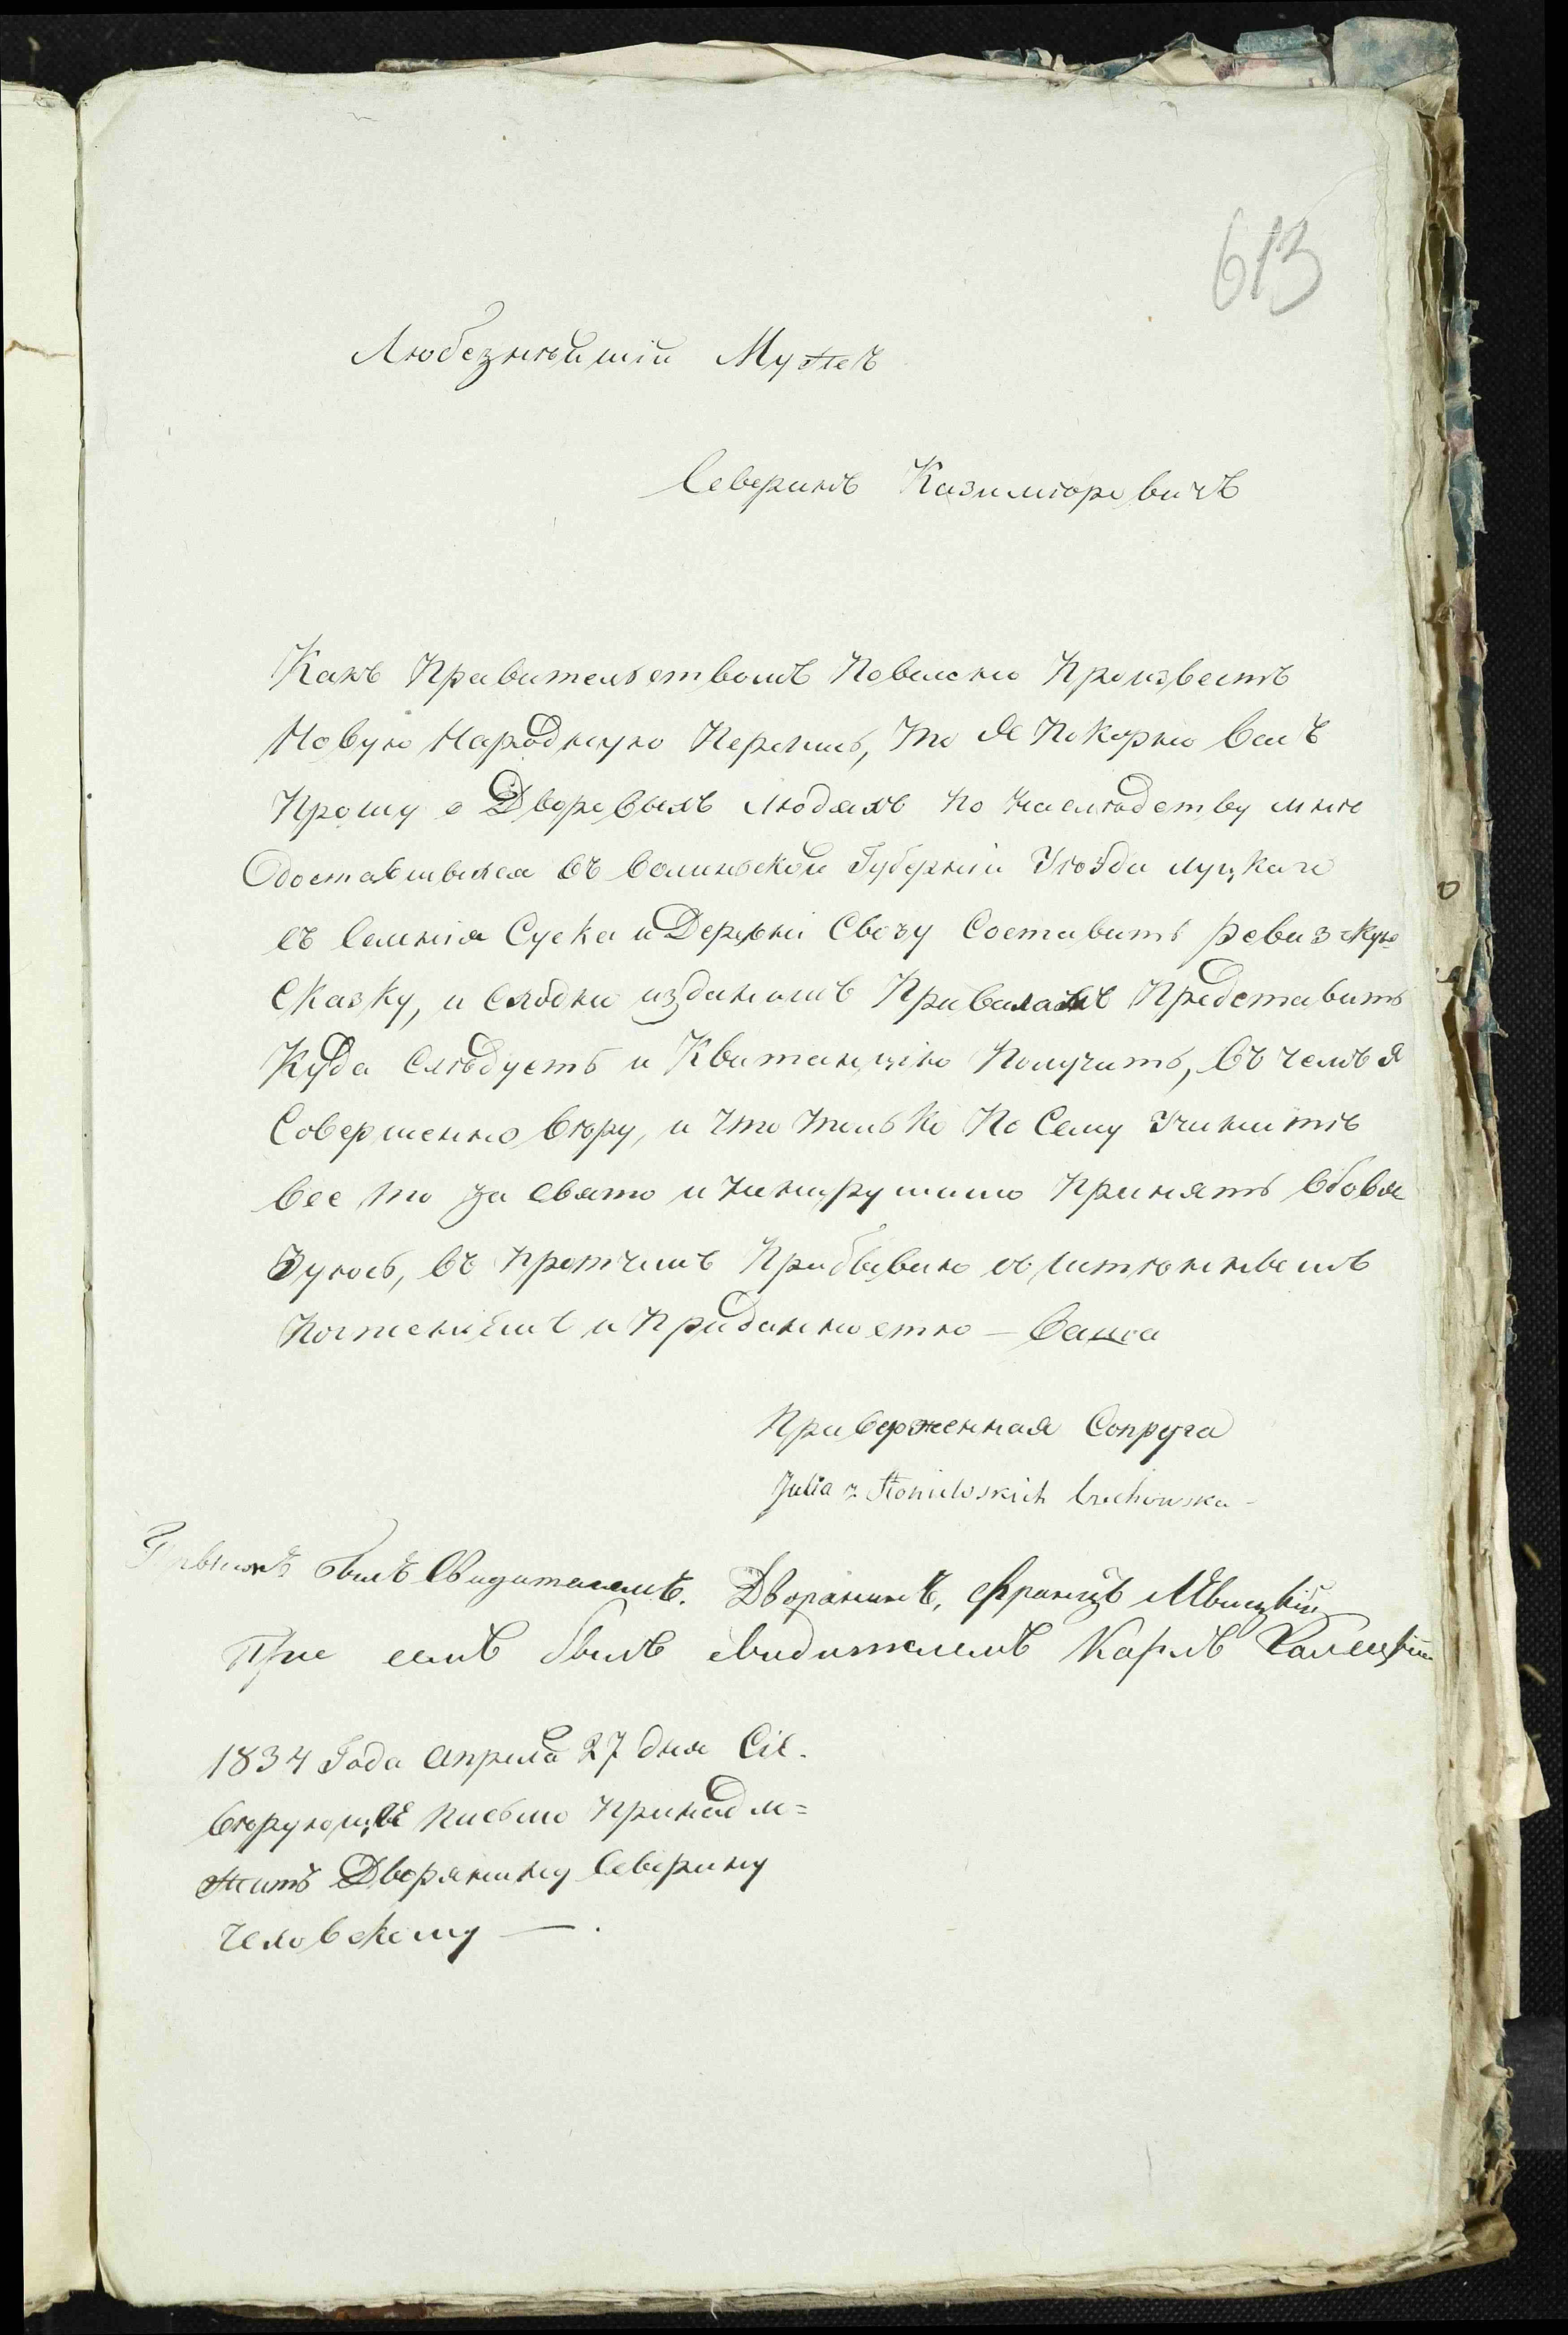 613
Любезнѣйшій Мужеъ
Северинъ Казимѣровичъ
Какъ Правительствомъ Повелено Произвесть
Новую Народную Перепись, То Я Покорно Васъ
Прошу о Дворовыхъ Людяхъ по наслѣдству мнѣ
Одоставшихся Въ Волинской Губерніи Уѣзда луцкаго
въ Селения Суска и Деревни Свозу Составить ревизскую
Сказку, и Слѣдно изданымъ Правиламъ Представить
Куда Слѣдуетъ и Квитанцію Получить, Въ чемъ я
Совершенно Вѣру, и Что Только По Сему Учините
Все то за Свято и ненарушимо Принять Обовя
зуюсь, Въ Протчемъ Прибываю съ истиннымъ
Почтениемъ и Приданностю – Ваша
Приверженная Сопруга
Julia z
былъ Свидителемъ. Дворанинъ, Францъ
При семъ былъ свидителемъ Карлъ
1834 Года Апреля 27 дня Сіе.
Вѣрующее Письмо Принадле=
житъ Дворянину Северину
—.